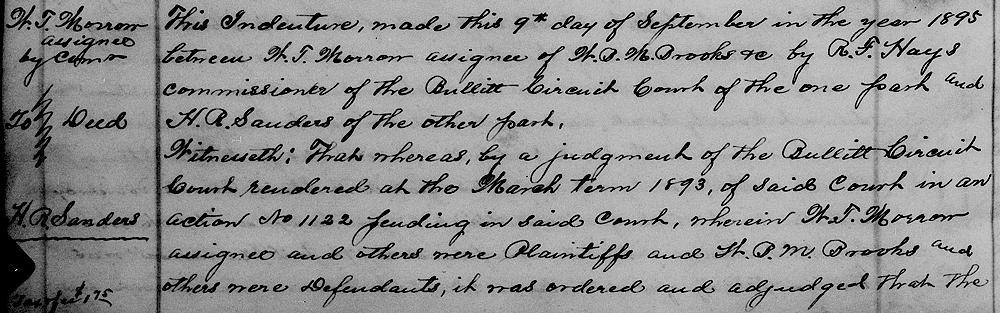 W. T. Morrow
assignee
by Comr
To Deed
H. R. Sanders
This Indenture, made this 9th day of September in the year 1895
between W. T. Morrow assignee of W. P. M. Brooks &c by R. F. Hays
commissioner of the Bullitt Circuit Court of the one part and
H. R. Sanders of the other part,
Witnesseth: That whereas, by a judgment of the Bullitt Circuit
Court rendered at the March term 1893, of said Court in an
action No 1122 pending in said Court, wherein W. T. Morrow
assignee and others were Plaintiffs and W. P. M. Brooks and
others were Defendants, it was ordered and adjudged that the